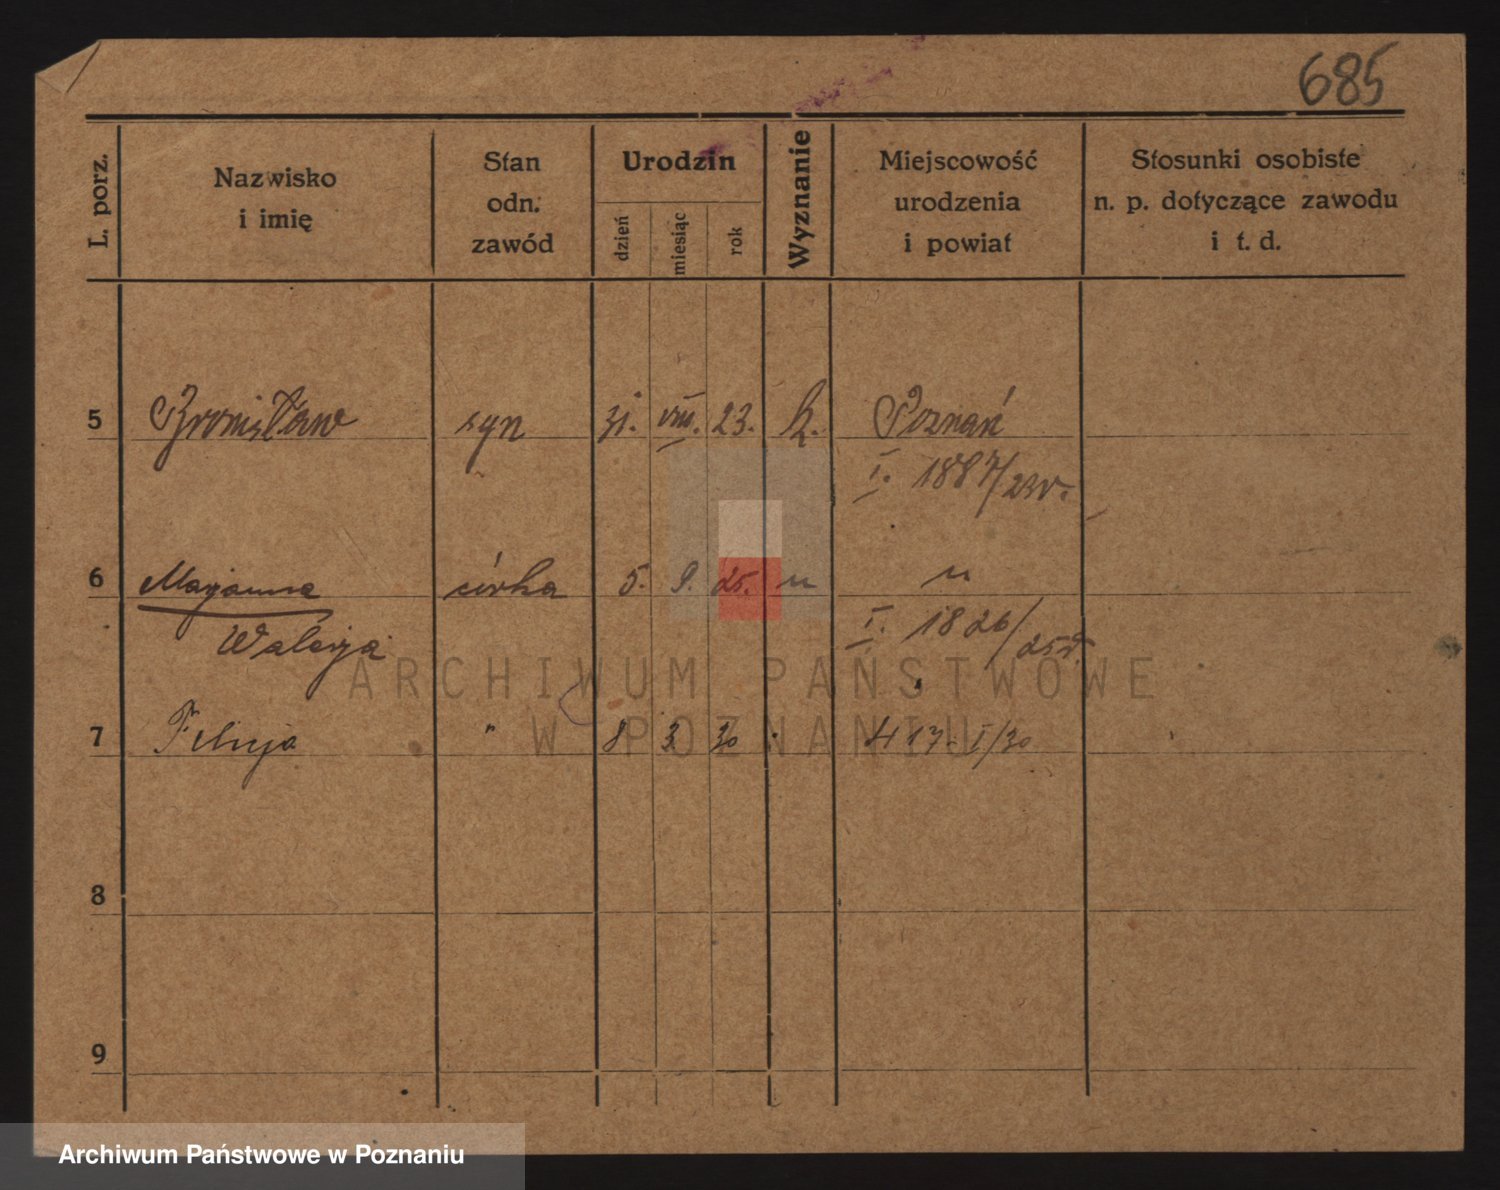 685
L. porz.
Nazwisko
i imię
Stan
odn.
zawód
Urodzin
dzień
miesiąc
rok
Wyznanie
Miejscowość
urodzenia
i powiat
Stosunki osobiste
n. p. dotyczące zawodu
i t. d.
5 Bronisław syn 31. VIII. 23. k. Poznań
I. 1887/23
6 Marjanna córka 5. 9. 25. " "
Walerja
I. 1826/25
7 Felicja " 8 3 30 413 I/30
8
9
ARCHIWUM PAŃSTWOWE
W POZNANIU
Archiwum Państwowe w Poznaniu